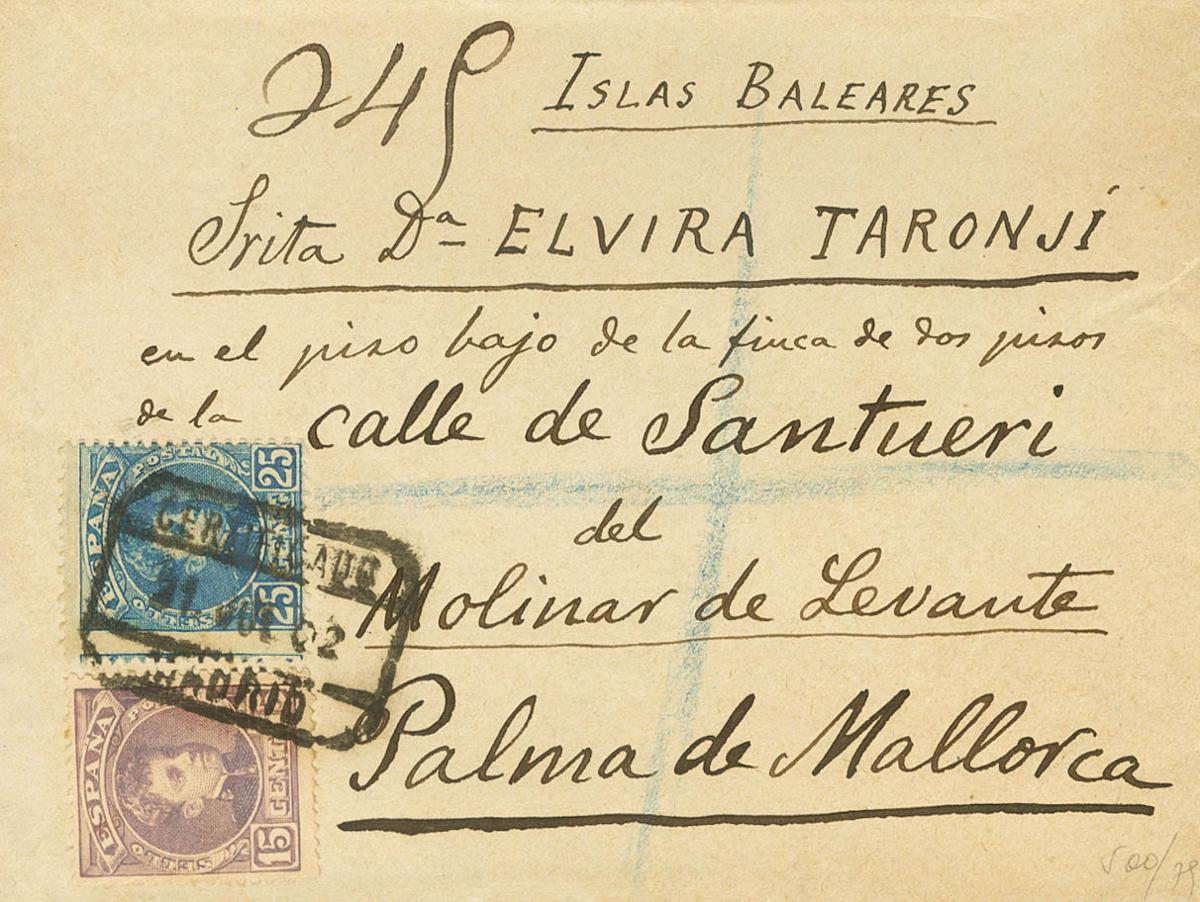 249 ISLAS BALEARES
Srita Dª ELVIRA TARONJÍ
en el piso bajo de la finca de dos pisos
de la calle de Santueri
del
Molinar de Levante
Palma de Mallorca
ESPAÑA
25
25
CERTIFICADO
21
02
MADRID
ESPAÑA
15
500/75